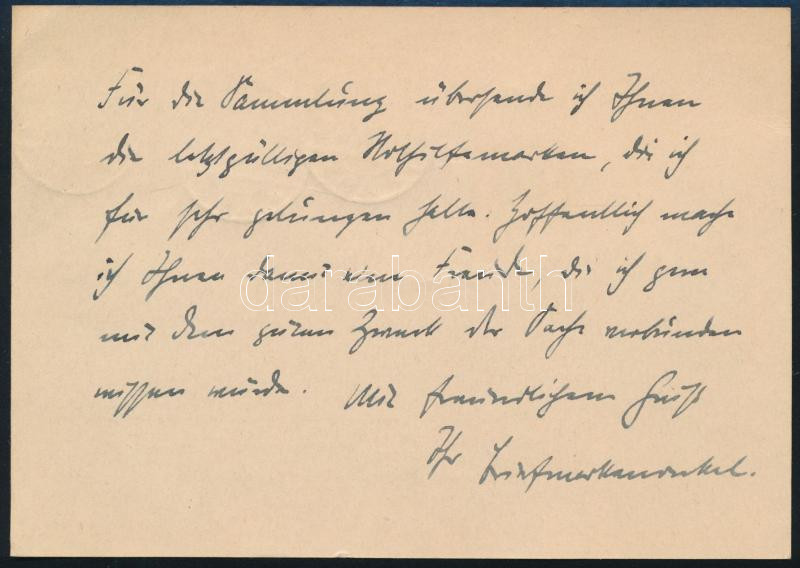 Für die Sammlung übersende ich Ihnen
die letztgültigen Nothilfemarken, die ich
für sehr gelungen halte. Hoffentlich mache
ich Ihnen damit eine Freude, die ich gern
mit dem guten Zweck der Sache verbunden
wissen würde. Mit freundlichem Gruß
Ihr Briefmarkenonkel.
darabanth